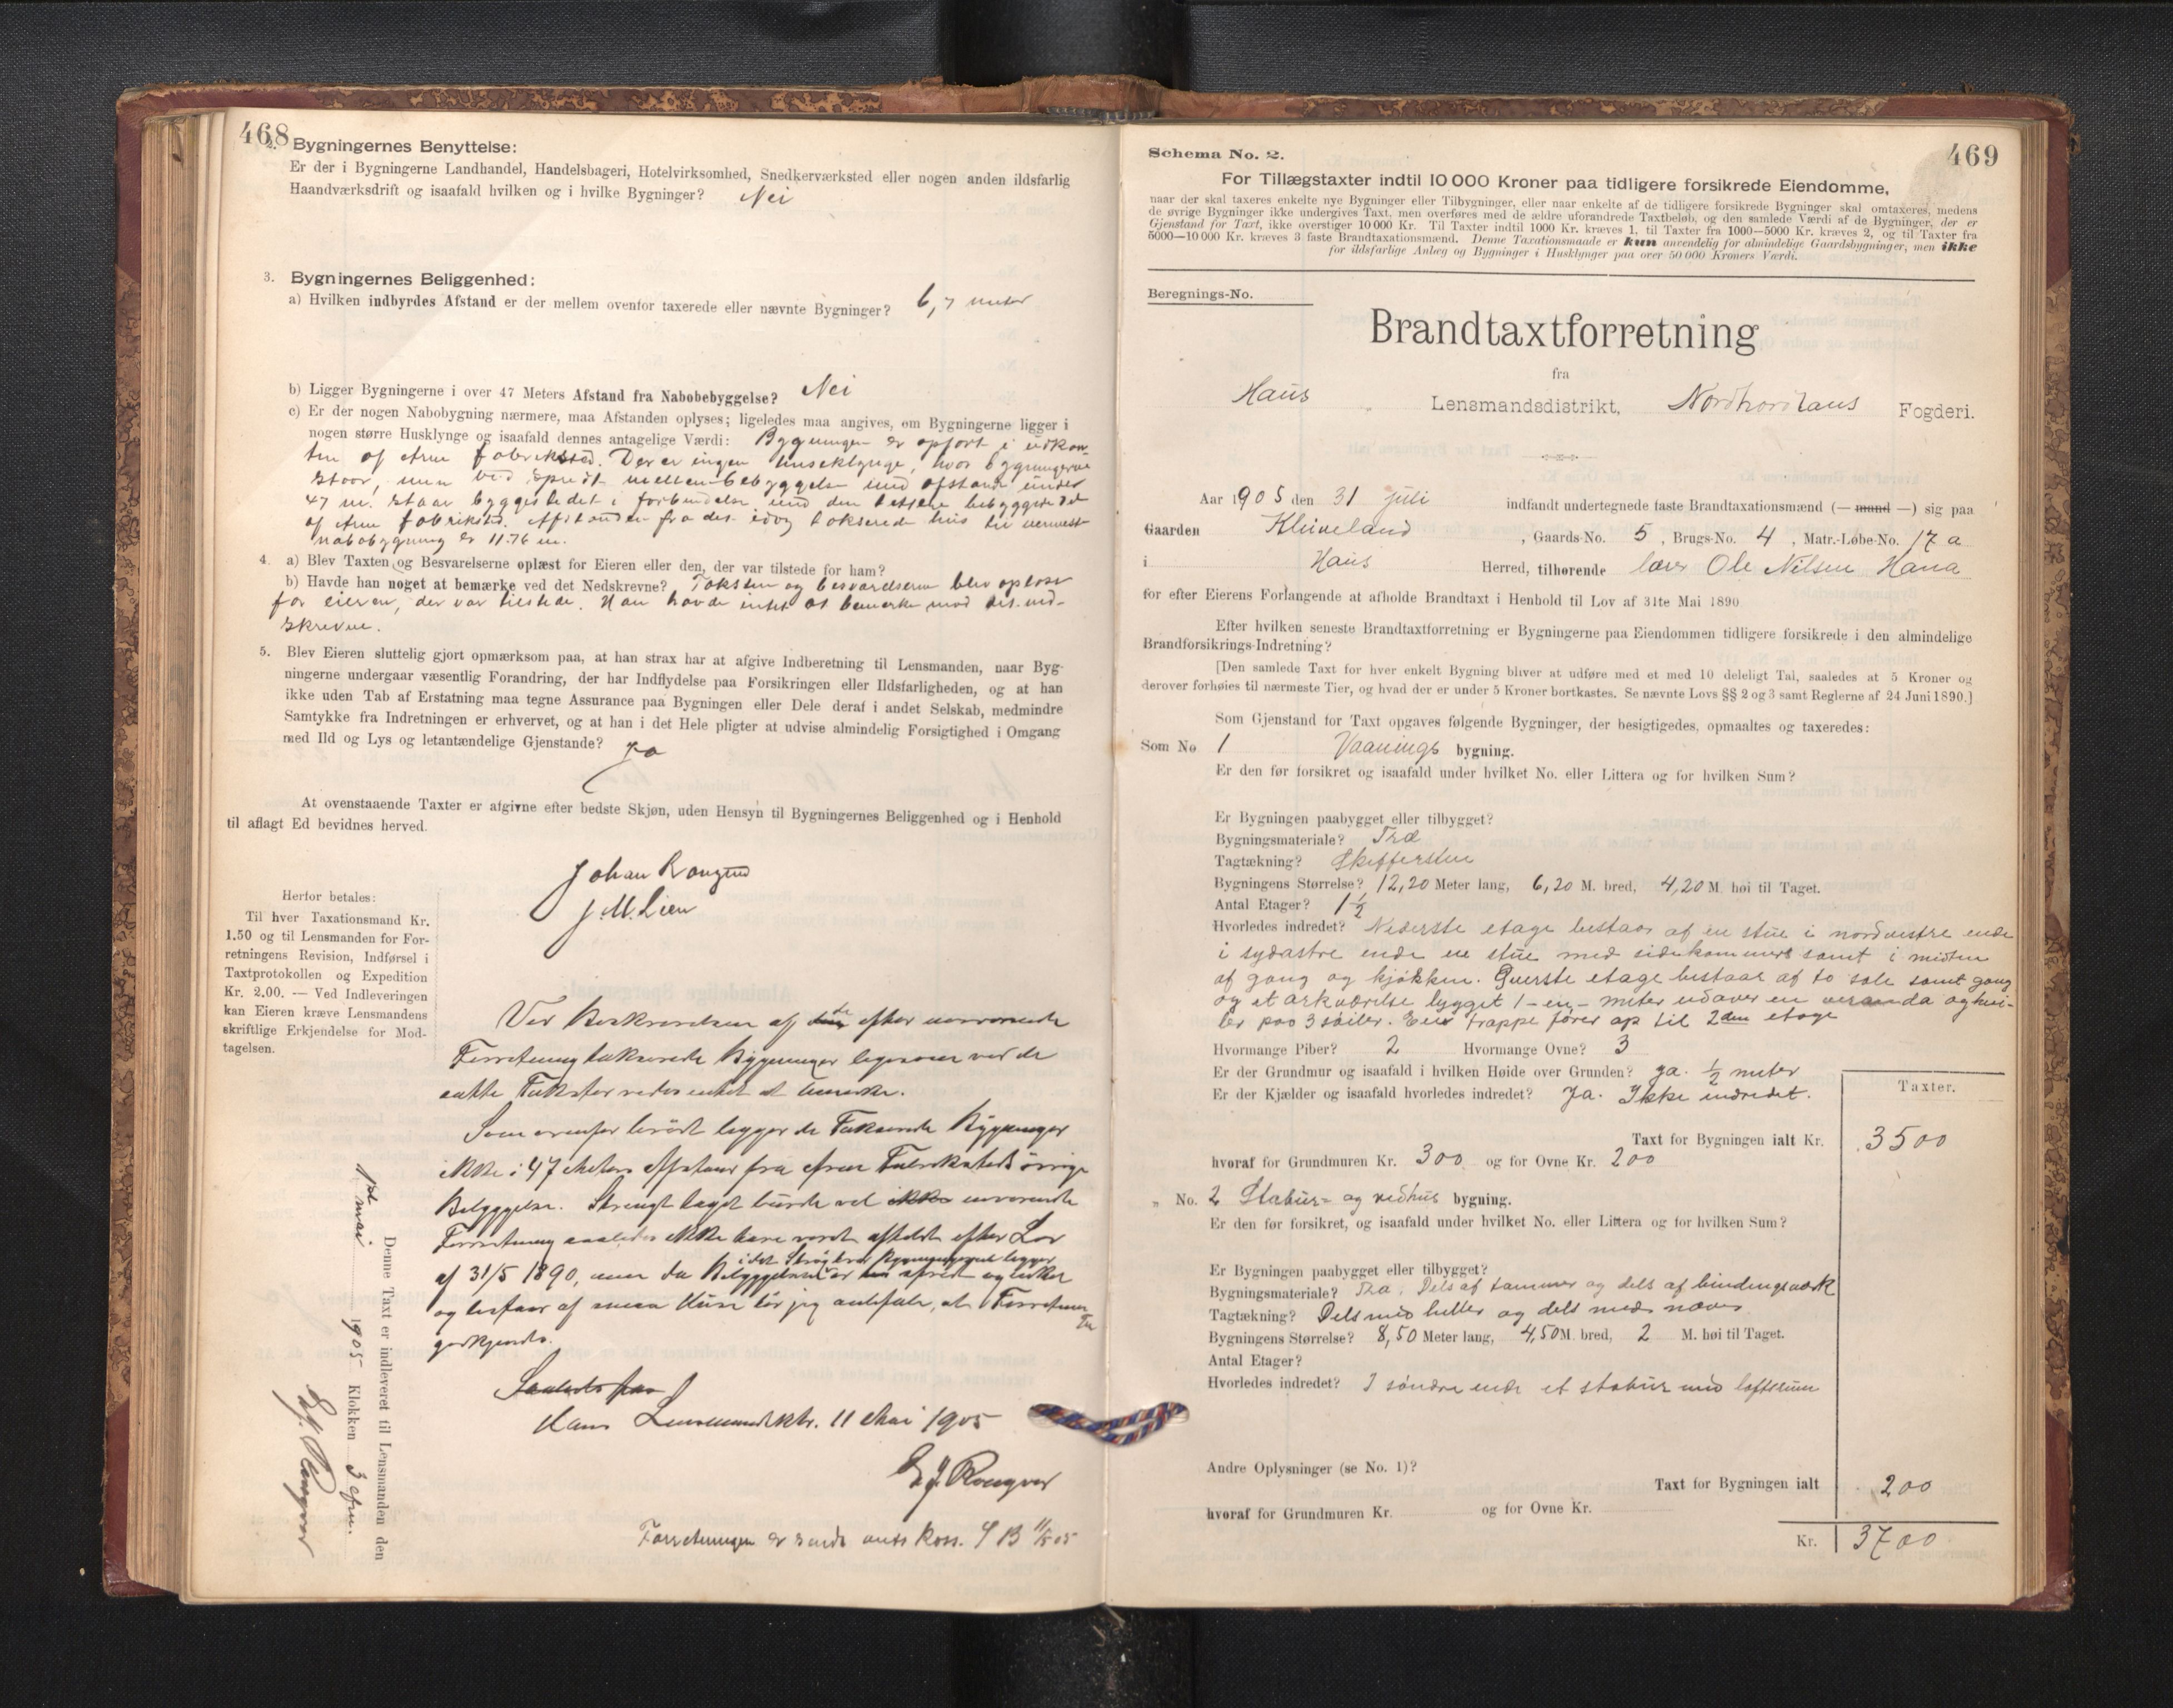 468
2. Bygningernes Benyttelse:
Er der i Bygningerne Landhandel, Handelsbageri, Hotelvirksomhed, Snedkerværksted eller nogen anden ildsfarlig
Haandværksdrift og isaafald hvilken og i hvilke Bygninger? Nei
3. Bygningernes Beliggenhed:
a) Hvilken indbyrdes Afstand er der mellem ovenfor taxerede eller nævnte Bygninger? 6,7 meter
b) Ligger Bygningerne i over 47 Meters Afstand fra Nabobebyggelse? Nei
c) Er der nogen Nabobygning nærmere, maa Afstanden oplyses; ligeledes maa angives, om Bygningerne ligger i
nogen større Husklynge og isaafald dennes antagelige Værdi: Bygningen er opført i udkan-
ten af Arne fabriksted. Der er ingen huseklynge, hvor bygningerne
staar, men ved spredt mellem bebyggelse med afstand under
47 m. staar byggestedet i forbindelse med den tettere bebyggede del
af Arne fabriksted. Afstanden fra det idag takserede hus til nermeste
nabobygning er 11.76 m.
4. a) Blev Taxten og Besvarelserne oplæst for Eieren eller den, der var tilstede for ham?
b) Havde han noget at bemærke ved det Nedskrevne? Taksten og besvarelserne blev oplæst
for eieren, der var tilstede. Han havde intet at bemerke mod det ned-
skrevne.
5. Blev Eieren sluttelig gjort opmærksom paa, at han strax har at afgive Indberetning til Lensmanden, naar Byg-
ningerne undergaar væsentlig Forandring, der har Indflydelse paa Forsikringen eller Ildsfarligheden, og at han
ikke uden Tab af Erstatning maa tegne Assurance paa Bygningen eller Dele deraf i andet Selskab, medmindre
Samtykke fra Indretningen er erhvervet, og at han i det Hele pligter at udvise almindelig Forsigtighed i Omgang
med Ild og Lys og letantændelige Gjenstande? Ja
At ovenstaaende Taxter er afgivne efter bedste Skjøn, uden Hensyn til Bygningernes Beliggenhed og i Henhold
til aflagt Ed bevidnes herved.
Johan
J. M. Lien
Herfor betales:
Til hver Taxationsmand Kr.
1.50 og til Lensmanden for For-
retningens Revision, Indførsel i
Taxtprotokollen og Expedition
Kr. 2.00. — Ved Indleveringen
kan Eieren kræve Lensmandens
skriftlige Erkjendelse for Mod-
tagelsen.
Ved Beskrivelsen af de efter nærværende
Forretning takserede Bygninger ligesom ved de
satte Takster vides intet at bemerke.
Som ovenfor berørt ligger de takserede Bygninger
ikke i 47 Meters Afstand fra Arne Fabriksteds øvrige
Bebyggelse. Strengt taget burde vel ikke nærværende
Forretning saaledes ikke have været afholdt efter Lov
i det Strøg hvor Bygningerne ligger
af 31/5 1890, men da Bebyggelsen er spredt og
og bestaar af smaa Huse tør jeg anbefale, at Forretningen
godkjendes.
Haus Lensmandsktr. 11 Mai 1905
Forretningen er sendt 11/5 05
Denne Taxt er indleveret til Lensmanden den
1ste mai 1905 Klokken 3 efm.
469
Schema No. 2.
For Tillægstaxter indtil 10 000 Kroner paa tidligere forsikrede Eiendomme,
naar der skal taxeres enkelte nye Bygninger eller Tilbygninger, eller naar enkelte af de tidligere forsikrede Bygninger skal omtaxeres, medens
de øvrige Bygninger ikke undergives Taxt, men overføres med de ældre uforandrede Taxtbeløb, og den samlede Værdi af de Bygninger, der er
Gjenstand for Taxt, ikke overstiger 10 000 Kr. Til Taxter indtil 1000 Kr. kræves 1, til Taxter fra 1000—5000 Kr. kræves 2, og til Taxter fra
5000—10 000 Kr. kræves 3 faste Brandtaxationsmænd. Denne Taxationsmaade er kun anvendelig for almindelige Gaardsbygninger, men ikke
for ildsfarlige Anlæg og Bygninger i Husklynger paa over 50 000 Kroners Værdi.
Beregnings-No.
Brandtaxtforretning
fra
Haus Lensmandsdistrikt, Nordhordlands Fogderi.
Aar 1905 den 31 juli indfandt undertegnede faste Brandtaxationsmænd (— mand —) sig paa
Gaarden Kluveland, Gaards-No. 5, Brugs-No. 4, Matr.-Løbe-No. 17 a
i Haus Herred, tilhørende lærer Ole Nilsen Hana
for efter Eierens Forlangende at afholde Brandtaxt i Henhold til Lov af 31te Mai 1890
Efter hvilken seneste Brandtaxtforretning er Bygningerne paa Eiendommen tidligere forsikrede i den almindelige
Brandforsikrings-Indretning?
[Den samlede Taxt for hver enkelt Bygning bliver at udføre med et med 10 deleligt Tal, saaledes at 5 Kroner og
derover forhøies til nærmeste Tier, og hvad der er under 5 Kroner bortkastes. Se nævnte Lovs §§ 2 og 3 samt Reglerne af 24 Juni 1890.]
Som Gjenstand for Taxt opgaves følgende Bygninger, der besigtigedes, opmaaltes og taxeredes:
Som No 1 Vaanings bygning.
Er den før forsikret og isaafald under hvilket No. eller Littera og for hvilken Sum?
Er Bygningen paabygget eller tilbygget?
Bygningsmateriale? Træ
Tagtækning? Skiffersten
Bygningens Størrelse? 12,20 Meter lang, 6,20 M. bred, 4,20 M. høi til Taget.
Antal Etager? 1½
Hvorledes indredet? Nederste etage bestaar af en stue i nordvestre ende
i sydøstre ende en stue med sidekammers samt i midten
af gang og kjøkken. Øverste etage bestaar af to sale samt gang
og et arkværelse bygget 1 – en – meter udover en veranda og hvi-
ler paa 3 søiler. En trappe fører op til 2den etage
Hvormange Piber? 2 Hvormange Ovne? 3
Er der Grundmur og isaafald i hvilken Høide over Grunden? ja. ½ meter
Er der Kjælder og isaafald hvorledes indredet? Ja. Ikke indredet.
Taxter.
Taxt for Bygningen ialt Kr. 3500
hvoraf for Grundmuren Kr. 300 og for Ovne Kr. 200
„ No. 2 Stabur- og vedhus bygning.
Er den før forsikret, og isaafald under hvilket No. eller Littera og for hvilken Sum?
Er Bygningen paabygget eller tilbygget?
Bygningsmateriale? Træ. Dels af tømmer og dels af bindingsværk
Tagtækning? Dels med heller og dels med næver
Bygningens Størrelse? 8,50 Meter lang, 4,50 M. bred, 2 M. høi til Taget.
Antal Etager?
Hvorledes indredet? I søndre ende et stabur med loftsrum
Andre Oplysninger (se No. 1)?
Taxt for Bygningen ialt 200
hvoraf for Grundmuren Kr. og for Ovne Kr.
Kr. 3700